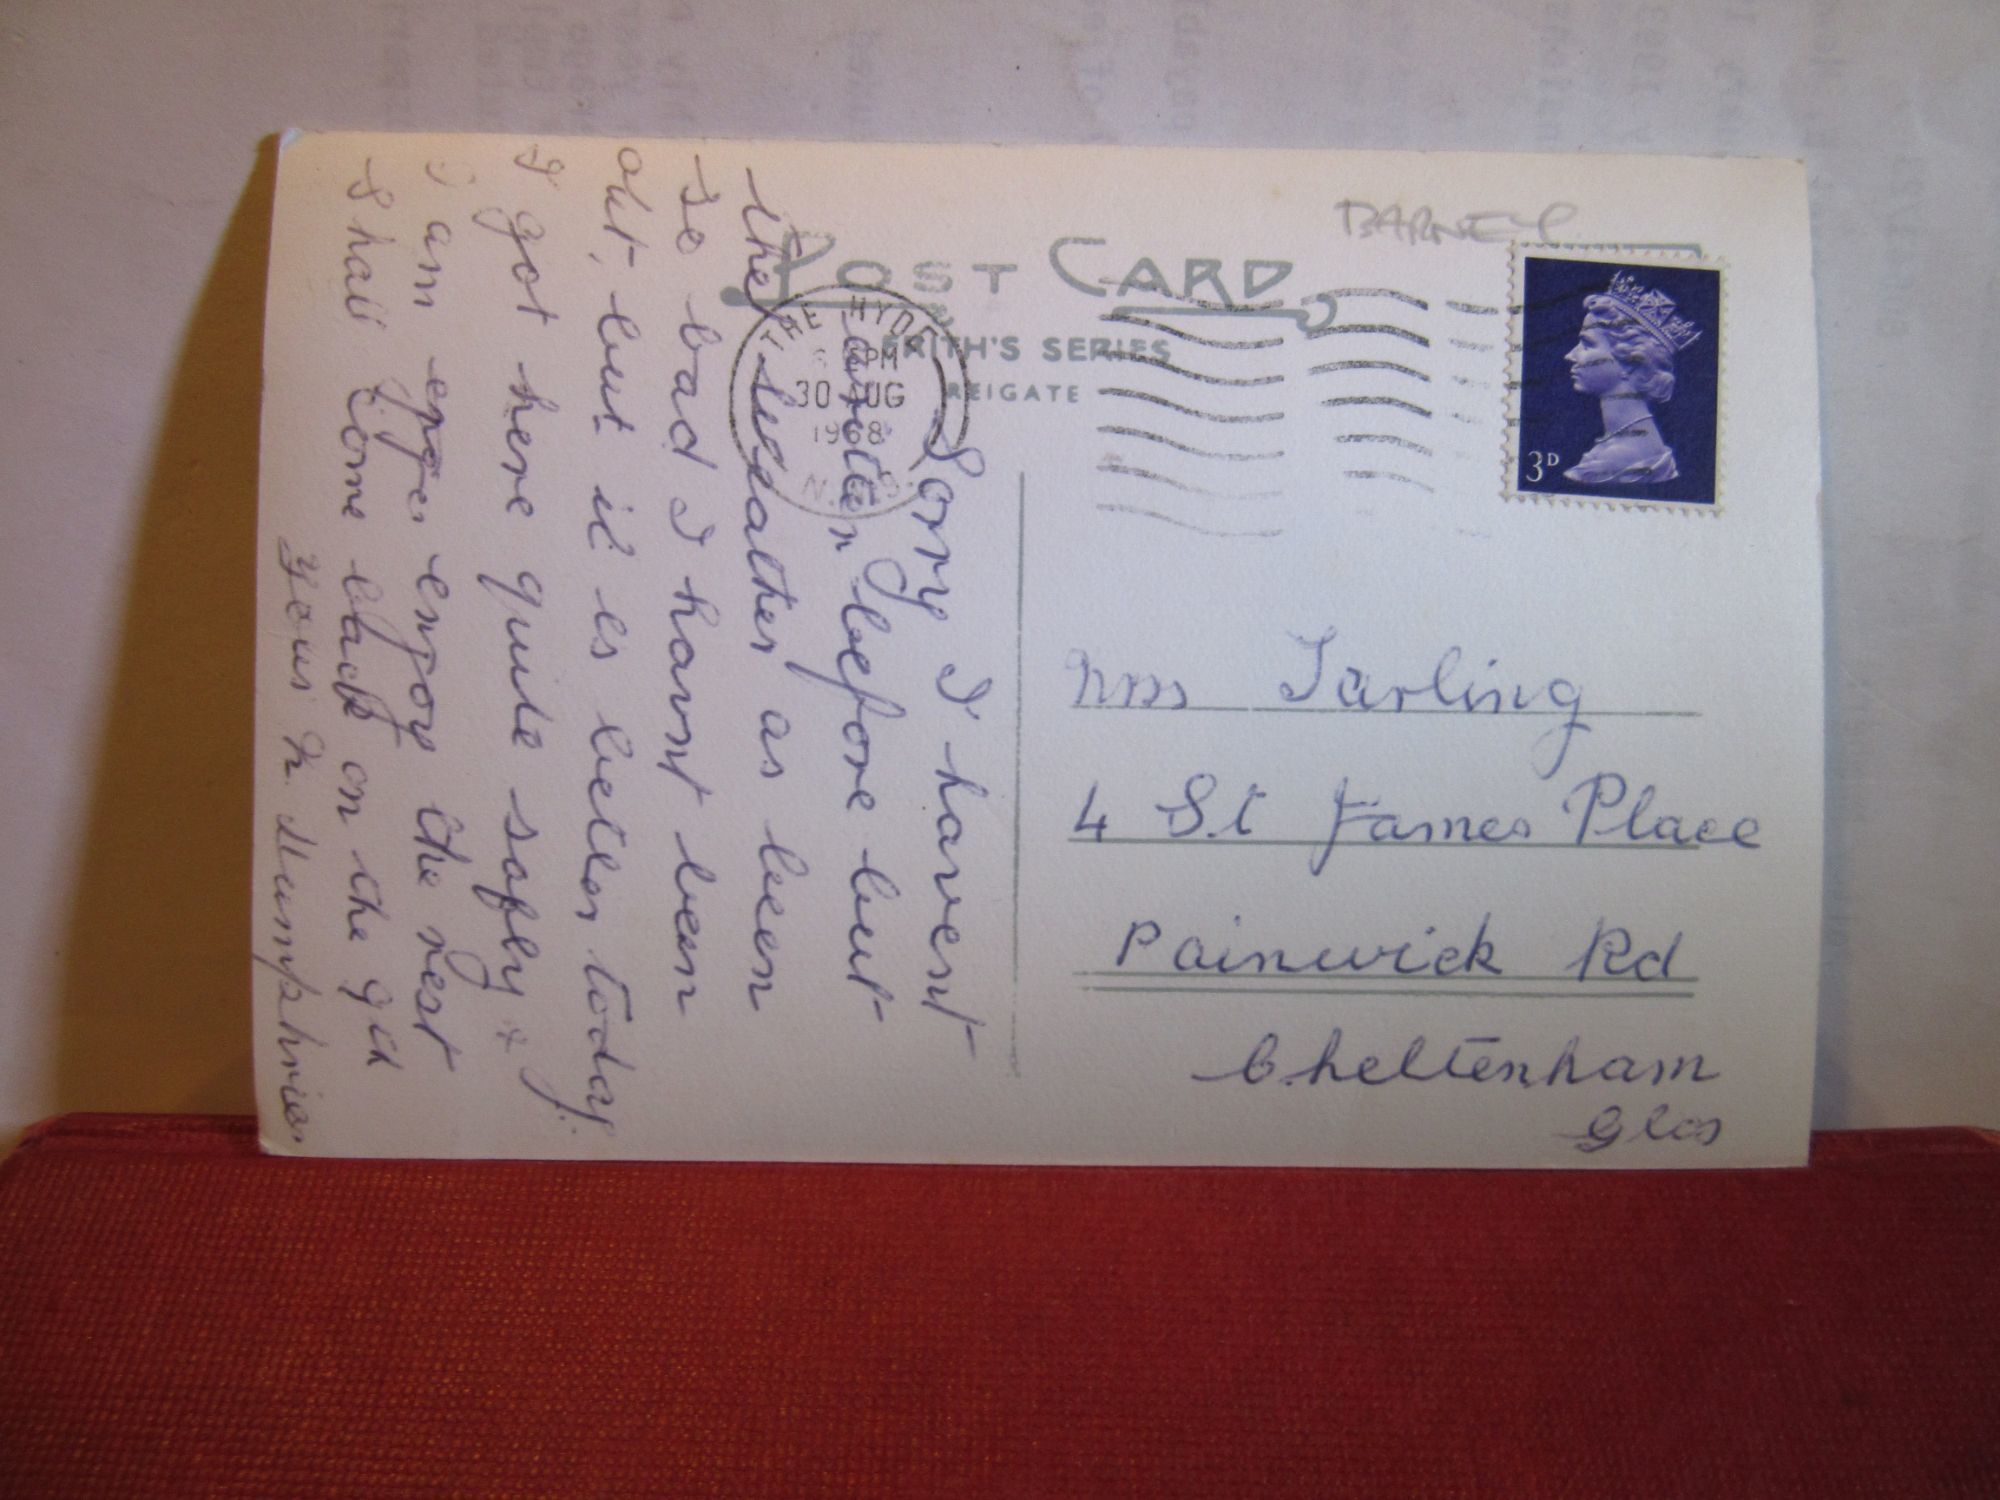 BARNEY
POST CARD
FRITH'S SERIES
REIGATE
THE HYDE
PM
30 AUG
1968
N.W.9.
3D
Sorry I havent
written before but
the weather as been
so bad I havnt been
out, but it is better today.
I got here quite safly &
I am enjoy the rest
I hall come back on the 9th
Yours M. Humphries
Mrs Tarling
4 St James Place
Painwick Rd
Cheltenham
Glos